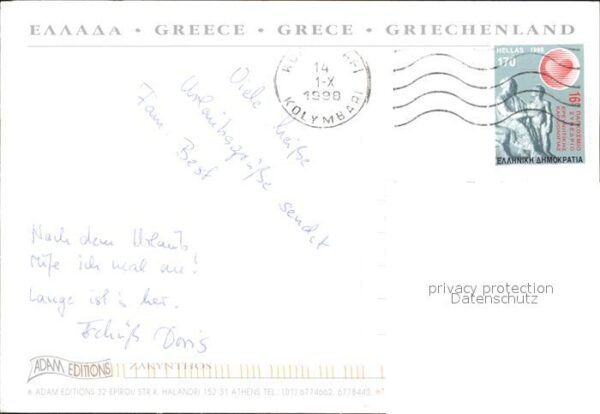 ΕΛΛΑΔΑ • GREECE • GRECE • GRIECHENLAND
14
1-X
1998
KOLYMBARI
HELLAS 1998
170
16ο
ΠΑΓΚΟΣΜΙΟ
ΣΥΝΕΔΡΙΟ
ΚΑΡΔΙΟΛΟΓΙΑΣ
ΕΛΛΗΝΙΚΗ ΔΗΜΟΚΡΑΤΙΑ
Viele heiße
Urlaubsgrüße sendet
Fam. Best
Nach dem Urlaub
rufe ich mal an!
Lange ist's her.
Tschüß Doris
privacy protection
Datenschutz
ADAM EDITIONS
ZAKYNTHOS
ADAM EDITIONS 32 EPIROU STR K. HALANDRI 152 31 ATHENS TEL.: (01) 6774662, 6778445,